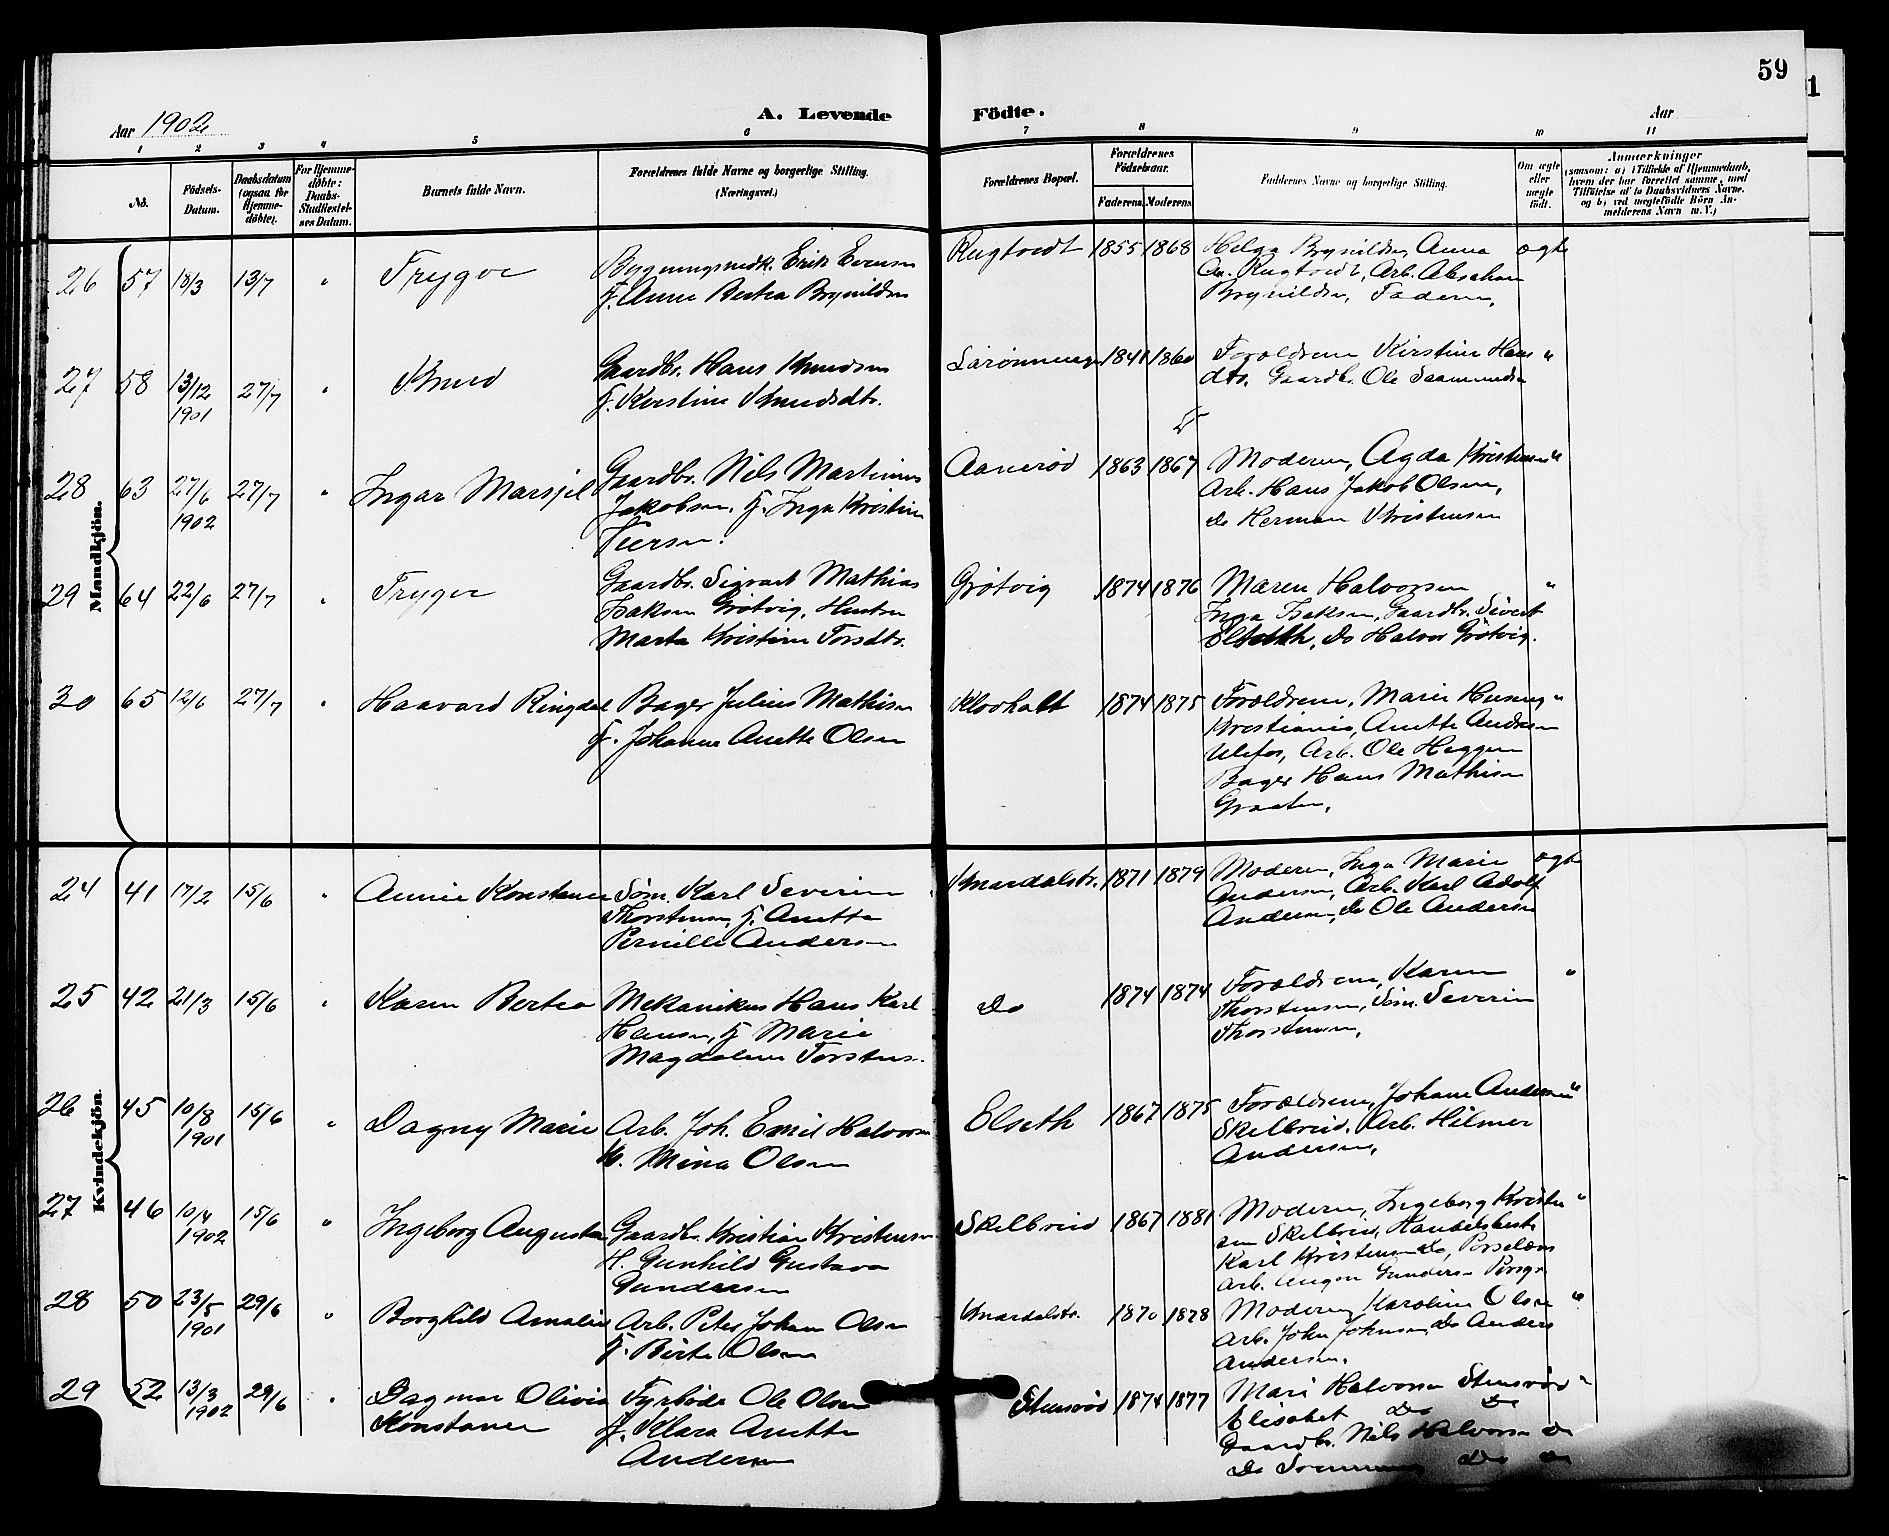 59
1
Aar 1902
A. Levende Födte.
Aar
1 2 3 4 5 6 7 8 9 10 11
No.
Födsels-
Datum.
Daabsdatum
(ogsaa for
Hjemme-
döbte).
For Hjemme-
döbte:
Daabs-
Stadfæstel-
ses Datum.
Barnets fulde Navn.
Forældrenes fulde Navne og borgerlige Stilling.
(Næringsvei.)
Forældrenes Bopæl.
Forældrenes
Födselsaar.
Faderens Moderens
Faddernes Navne og borgerlige Stilling.
Om ægte
eller
uægte
födt.
Anmærkninger
(saasom: a) i Tilfælde af Hjemmedaab,
hvem der har forrettet samme, med
Tilföielse af to Daabsvidners Navne,
og b) ved uægtefödte Börn An-
melderens Navn m. V.)
Mandkjön.
26 57 18/3 13/7 " Trygve
Erik Evensen
Rugtvedt 1855 1868
Helga Brynildsen, Anna
Rugtvedt, Arb. Absahon
Brynildsen, Faderen,
ægte
27 58 13/12 1901 27/7 " Knud
Gaardbr. Hans Knudsen
H. Kirstine Knudsdtr.
1841 1860
Forældrene Kirstine Hans
dtr. Gaardbr. Ole Saamundsen
"
28 63 27/6 1902 27/7 " Ingar Marsjel
Gaardbr. Nils Martinus
Jakobsen, H. Inga Kristine
Iversen.
Aanerød 1863 1867
Moderen, Agda Kristensen
Arb. Hans Jakob Olsen,
Do Herman Kristensen
"
29 64 22/6 27/7 " Trygve
Gaardbr. Sigvart Mathias
Isaksen Grøtvig, Hustru
Marta Kristine Torsdtr.
Grøtvig 1874 1876
Maren Halvorsen
Inga Isaksen, Gaardbr. Sivert
Elseth, Do Halvor Grøtvig.
"
30 65 12/6 27/7 " Haavard Ringdal
Bager Julius Mathisen
H. Johanne Anette Olsen
Klovholt 1874 1875
Forældrene, Marie
Kristiania, Anette Andersen
Ulefos, Arb. Ole Heggen
Bager Hans Mathisen
"
Kvindekjön.
24 41 17/2 15/6 " Annie Konstance
Søm. Karl Severin
Thorstensen, H. Anette
Pernille Andersen
Knardalstr. 1871 1879
Moderen, Inga Marie
Andersen, Arb. Karl Adolf
Andersen, Do Ole Andersen
ægte
25 42 21/3 15/6 " Karen Bertea
Mekanikus Hans Karl
Hansen, H Marie
Magdalene Torstens.
Do 1874 1874
Forældrene, Karen
Thorstensen, Søm. Severin
Thorstensen,
"
26 45 10/8 1901 15/6 " Dagny Marie
Arb. Joh. Emil Halvorsen
H. Mina Olsen
Elseth 1867 1875
Forældrene, Johane Andersen
Skelbred, Arb. Hilmer
Andersen,
"
27 46 10/4 1902 15/6 " Ingeborg Augusta
Gaardbr. Kristian Kristensen
H. Gunhild Gustava
Gundersen
Skelbred 1867 1881
Moderen, Ingeborg Kristen
sen Skelbred, Handelsbest.
Karl Kristensen do, Porselæns
arb. Gundersen Porsgr.
"
28 50 23/5 1901 29/6 " Borghild Amalie
Arb. Peter Johan Olsen
H. Birte Olsen
Knardalstr. 1870 1878
Moderen, Karoline Olsen
Arb. John Johnsen, Do Anders
Andersen.
"
29 52 13/3 1902 29/6 " Dagmar Olivia
Konstance
Fyrbøder Ole Olsen
H. Klara Anette
Andersen
Stensrød 1874 1877
Mari Halvorsen Stensrød
Elisabet Do Do
Gaardbr. Nils Halvorsen Do
Do Do Do
"